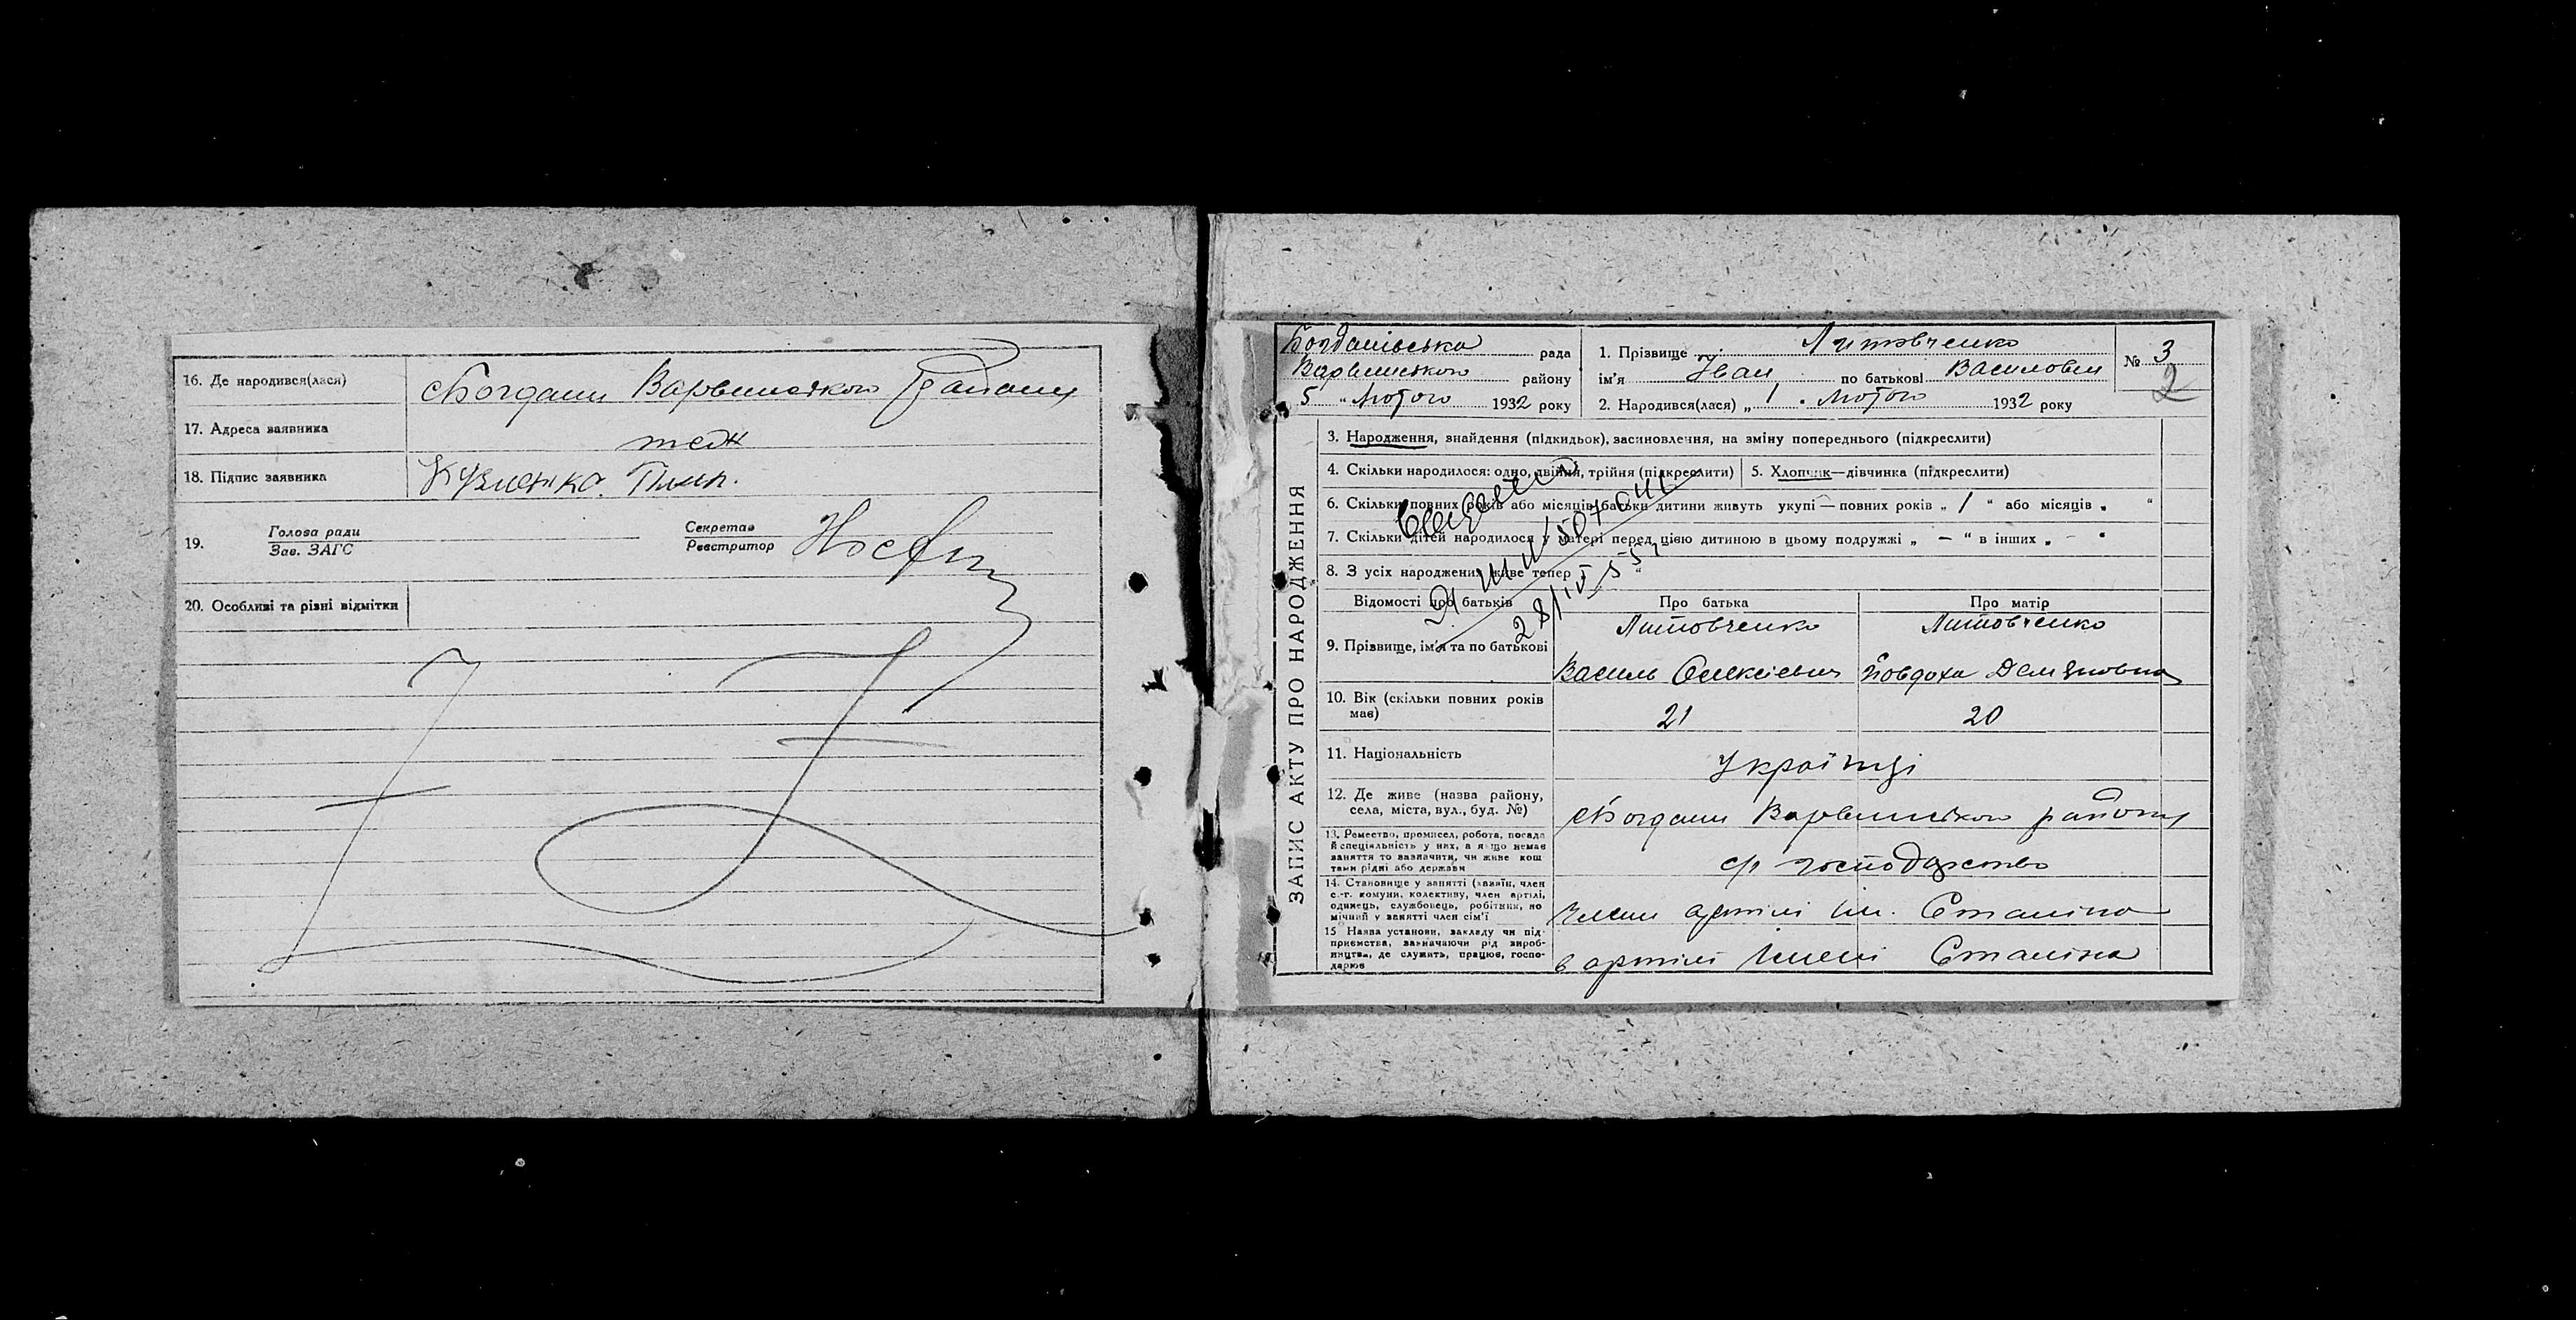 16. Де народився(лася) с Богдани Варвинського району
17. Адреса заявника теж
18. Підпис заявника Кузменко.
19. Голова ради
Зав. ЗАГС
Секретар
Реєстратор
20. Особливі та різні відмітки
ЗАПИС АКТУ ПРО НАРОДЖЕННЯ
Богданівська рада
Варвинського району
5 " Лютого 1932 року
1. Прізвище Литовченко
ім'я Іван по батькові Василович
2. Народився(лася) „ 1 " Лютого 1932 року
№ 3
2
3. Народження, знайдення (підкидьок), засиновлення, на зміну попереднього (підкреслити)
4. Скільки народилося: одно, двійня, трійня (підкреслити)
5. Хлопчик—дівчинка (підкреслити)
6. Скільки повних років або місяців батьки дитини живуть укупі — повних років „ 1 " або місяців „ "
7. Скільки дітей народилося у матері перед цією дитиною в цьому подружжі „ – " в інших „ – "
8. З усіх народжених живе тепер "
28/IV 55
Відомості про батьків
Про батька
Про матір
9. Прізвище, ім'я та по батькові
Литовченко
Василь Олексієвич
Литовченко
Йовдоха Демяновна
10. Вік (скільки повних років має)
21
20
11. Національність
Українці
12. Де живе (назва району, села, міста, вул., буд. №)
с Богдани Варвинського району
13. Ремество, промисел, робота, посада й спеціяльність у них, а якщо немає заняття то зазначити, чи живе коштами рідні або держави
с/г господарство
14. Становище у занятті (хазяїн, член с.-г. комуни, колективу, член артілі, одинець, службовець, робітник, помічний у занятті член сім'ї
Члени артілі ім. Сталіна
15 Назва установи, закладу чи підприємства, зазначаючи рід виробництва, де служить, працює, господарює
в артілі імені Сталіна